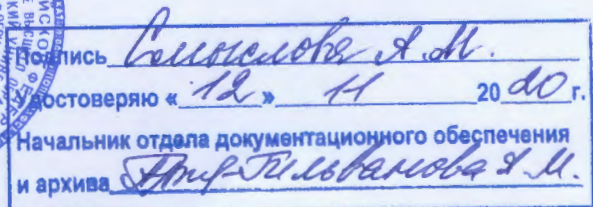 Подпись Смыслова А.М.
Удостоверяю «12» 11 2020 г.
Начальник отдела документационного обеспечения
и архива Гильванова А.М.